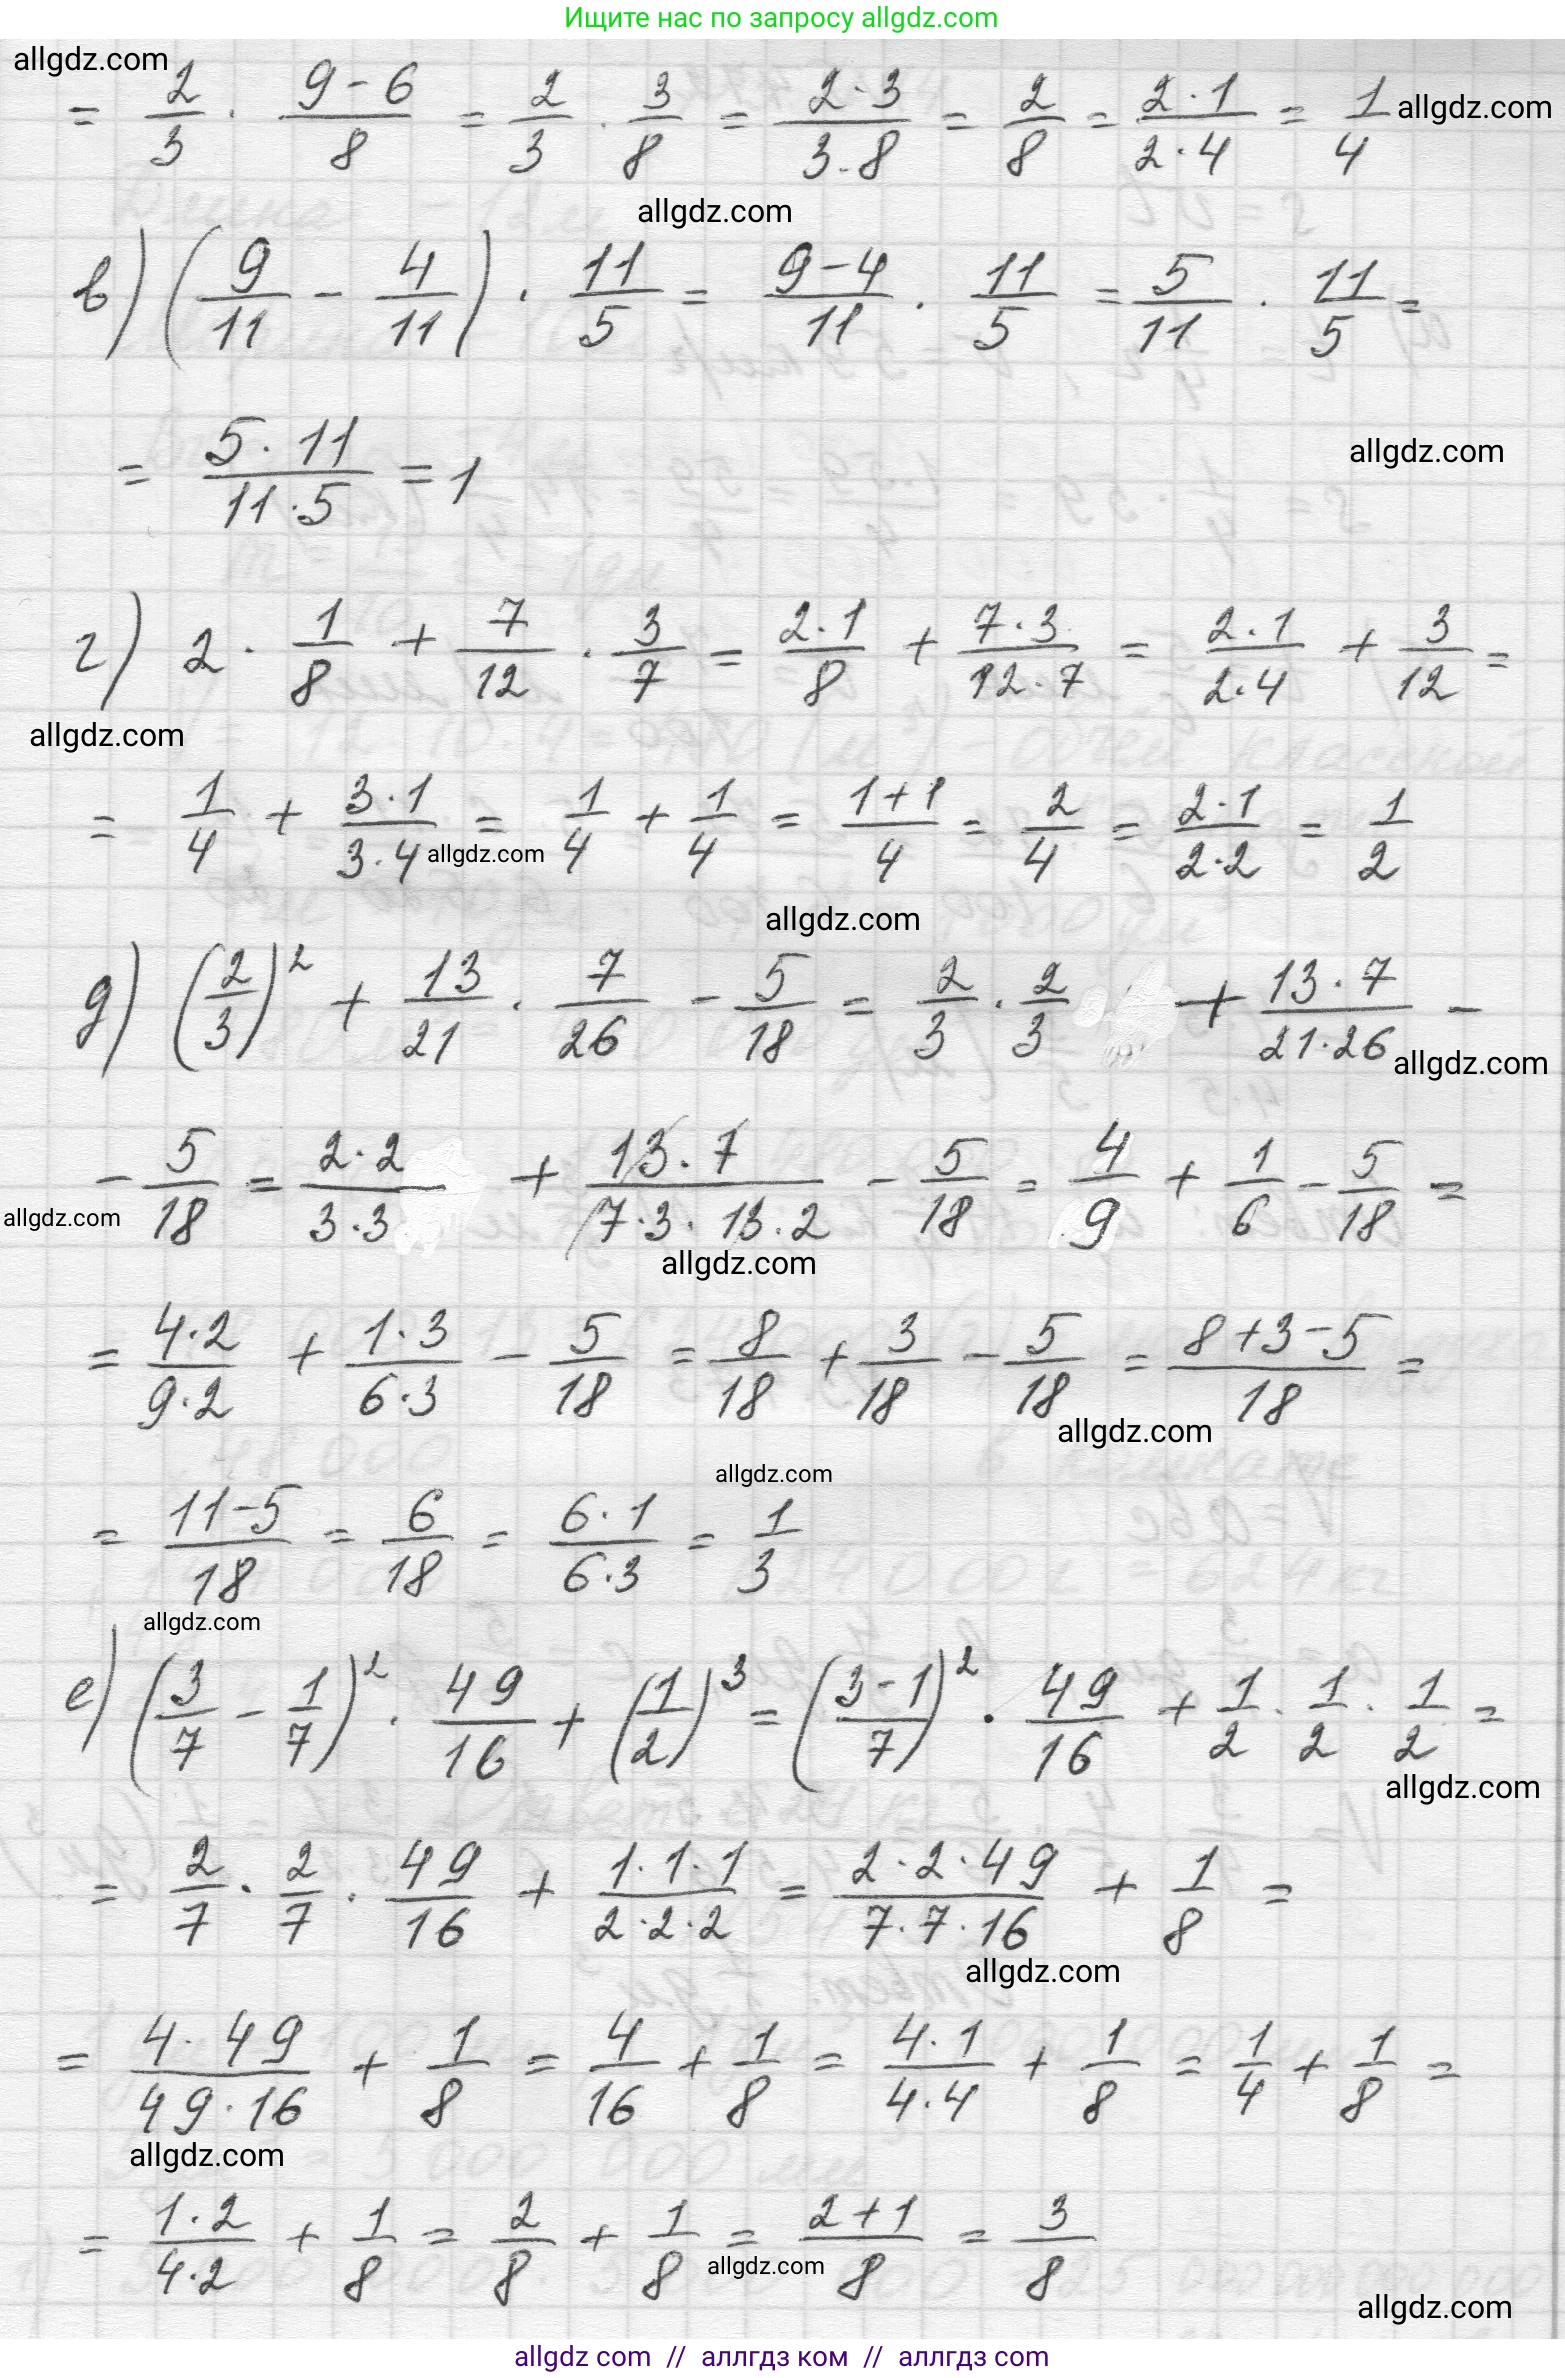 Ищите нас по запросу allgdz.com
allgdz.com
= 2/3 · (9-6)/8 = 2/3 · 3/8 = (2·3)/(3·8) = 2/8 = (2·1)/(2·4) = 1/4 allgdz.com
allgdz.com
в) (9/11 - 4/11) · 11/5 = (9-4)/11 · 11/5 = 5/11 · 11/5 =
= (5·11)/(11·5) = 1
allgdz.com
г) 2 · 1/8 + 7/12 · 3/7 = (2·1)/8 + (7·3)/(12·7) = (2·1)/(2·4) + 3/12 =
allgdz.com
= 1/4 + (3·1)/(3·4) = 1/4 + 1/4 = (1+1)/4 = 2/4 = (2·1)/(2·2) = 1/2
allgdz.com
allgdz.com
д) (2/3)² + 13/21 · 7/26 - 5/18 = 2/3 · 2/3 + (13·7)/(21·26) -
allgdz.com
- 5/18 = (2·2)/(3·3) + (13·7)/(7·3·13·2) - 5/18 = 4/9 + 1/6 - 5/18 =
allgdz.com
allgdz.com
= (4·2)/(9·2) + (1·3)/(6·3) - 5/18 = 8/18 + 3/18 - 5/18 = (8+3-5)/18 =
allgdz.com
allgdz.com
= (11-5)/18 = 6/18 = (6·1)/(6·3) = 1/3
allgdz.com
е) (3/7 - 1/7)² · 49/16 + (1/2)³ = ((3-1)/7)² · 49/16 + 1/2 · 1/2 · 1/2 =
allgdz.com
= 2/7 · 2/7 · 49/16 + (1·1·1)/(2·2·2) = (2·2·49)/(7·7·16) + 1/8 =
allgdz.com
= (4·49)/(49·16) + 1/8 = 4/16 + 1/8 = (4·1)/(4·4) + 1/8 = 1/4 + 1/8 =
allgdz.com
= (1·2)/(4·2) + 1/8 = 2/8 + 1/8 = (2+1)/8 = 3/8
allgdz.com
allgdz.com
allgdz com // аллгдз ком // аллгдз com